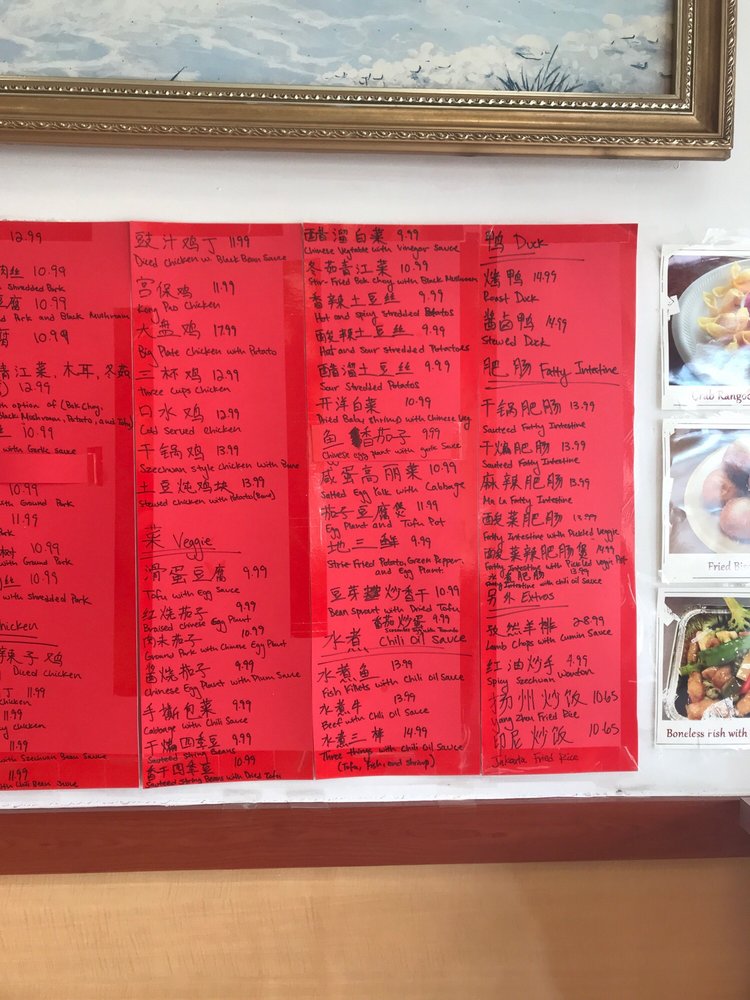 12.99
肉丝 10.99
Shredded Pork
豆腐 10.99
Pork and Black Mushroom
腐 10.99
青江菜,木耳,冬菇
12.99
with option of (Bok Choy,
Black Mushroom, Potato, and Tofu)
丝 10.99
with Garlic sauce
10.99
with Ground Pork
11.99
10.99
with Ground Pork
丝 10.99
with Shredded Pork
Chicken
辣子鸡
Diced Chicken
丁 11.99
Chicken
11.99
Chicken
11.99
with Szechuan Bean Sauce
11.99
with Chili Bean Sauce
豉汁鸡丁 11.99
Diced Chicken w. Black Bean Sauce
宫保鸡 11.99
Kong Pao Chicken
大盘鸡 17.99
Big Plate Chicken with Potato
三杯鸡 12.99
Three Cups Chicken
口水鸡 12.99
Cold Served Chicken
干锅鸡 13.99
Szechuan style Chicken with Bone
土豆炖鸡块 13.99
Stewed Chicken with Potato (Bone)
菜 Veggie
滑蛋豆腐 9.99
Tofu with Egg Sauce
红烧茄子 9.99
Braised Chinese Egg Plant
肉末茄子 10.99
Ground Pork with Chinese Egg Plant
酱烧茄子 9.99
Chinese Egg Plant with Plum Sauce
手撕包菜 9.99
Cabbage with Chili Sauce
干煸四季豆 9.99
Sauteed String Beans
香干四季豆 10.99
Sauteed String Beans with Dried Tofu
醋溜白菜 9.99
Chinese Vegetable with Vinegar Sauce
冬菇青江菜 10.99
Stir-Fried Bok Choy with Black Mushroom
香辣土豆丝 9.99
Hot and spicy Shredded Potatos
酸辣土豆丝 9.99
Hot and Sour Shredded Potatoes
醋溜土豆丝 9.99
Sour Shredded Potatos
开洋白菜 10.99
Dried Baby shrimp with Chinese Veg
鱼香茄子 9.99
Chinese egg plant with garlic Sauce
咸蛋高丽菜 10.99
Salted Egg Yolk with Cabbage
茄子豆腐煲 11.99
Egg Plant and Tofu Pot
地三鲜 9.99
Strie Fried Potato, Green Pepper,
and Egg Plant
豆芽 炒香干 10.99
Bean Sprout with Dried Tofu
番茄炒蛋 9.99
水煮 Chili Oil Sauce
水煮鱼 13.99
Fish Fillets with Chili Oil Sauce
水煮牛 13.99
Beef with Chili Oil Sauce
水煮三样 14.99
Three thing with Chili Oil Sauce
(Tofu, Fish, and Shrimp)
鸭 Duck
烤鸭 14.99
Roast Duck
酱卤鸭 14.99
Stewed Duck
肥肠 Fatty Intestine
干锅肥肠 13.99
Sauteed Fatty Intestine
干煸肥肠 13.99
Sauteed Fatty Intestine
麻辣肥肠 13.99
Ma La Fatty Intestine
酸菜肥肠 13.99
Fatty Intestine with Pickled Veggie
酸菜辣肥肠煲 14.99
Fatty Intestine with Pickled Veggie Pot
水煮肥肠 13.99
Fatty Intestine with chili oil Sauce
另外 Extras
孜然羊排 28.99
Lamb Chops with Cumin Sauce
红油炒手 4.99
Spicy Szechuan Wonton
扬州炒饭 10.65
Yang Zhou Fried Rice
印尼炒饭 10.65
Jakarta Fried Rice
Crab Rangoo
Fried Bi
Boneless rish with